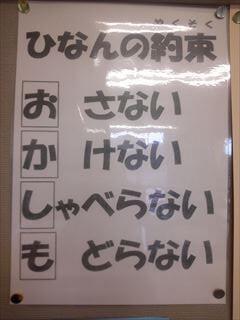 やくそく
ひなんの約束
お さない
か けない
しゃべらない
も どらない